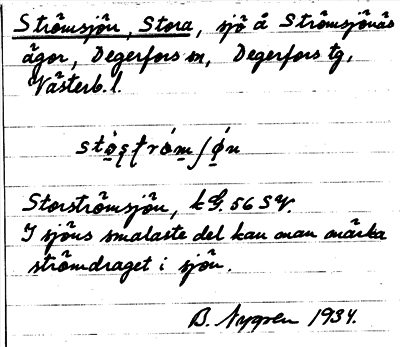 Strömsjön, Stora, sjö å Strömsjönäs
ägor, Degerfors sn, Degerfors tg,
Västerb. l.
Storströmsjön, k G. 56 SV.
I sjöns smalaste del kan man märka
strömdraget i sjön.
B. Nygren 1934.